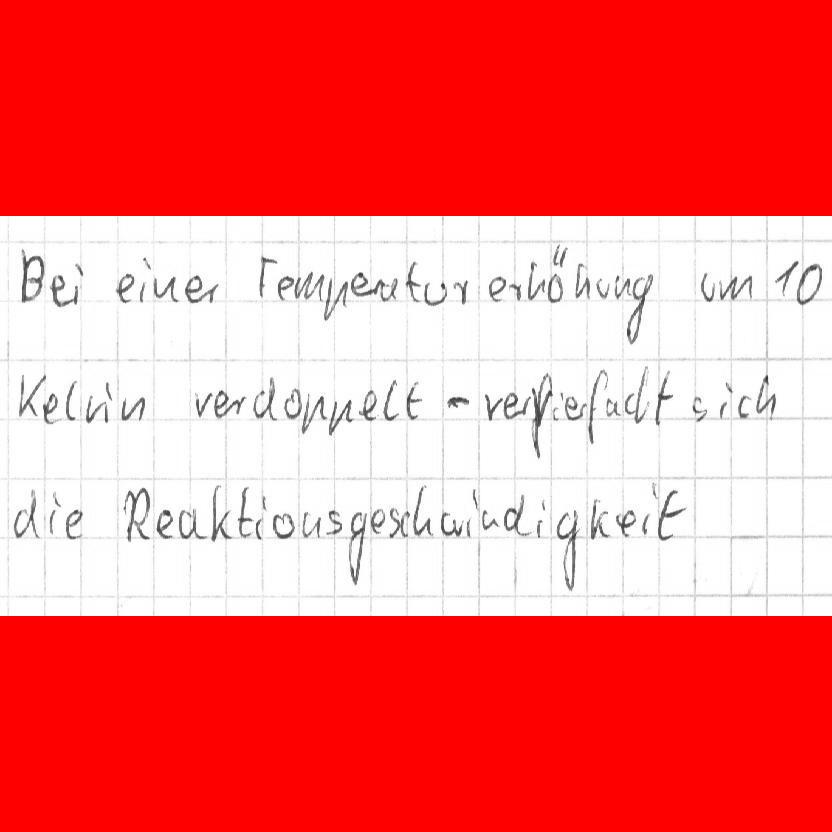 Bei einer Temperaturerhöhung um 10
Kelvin verdoppelt - verfierfacht sich
die Reaktionsgeschwindigkeit